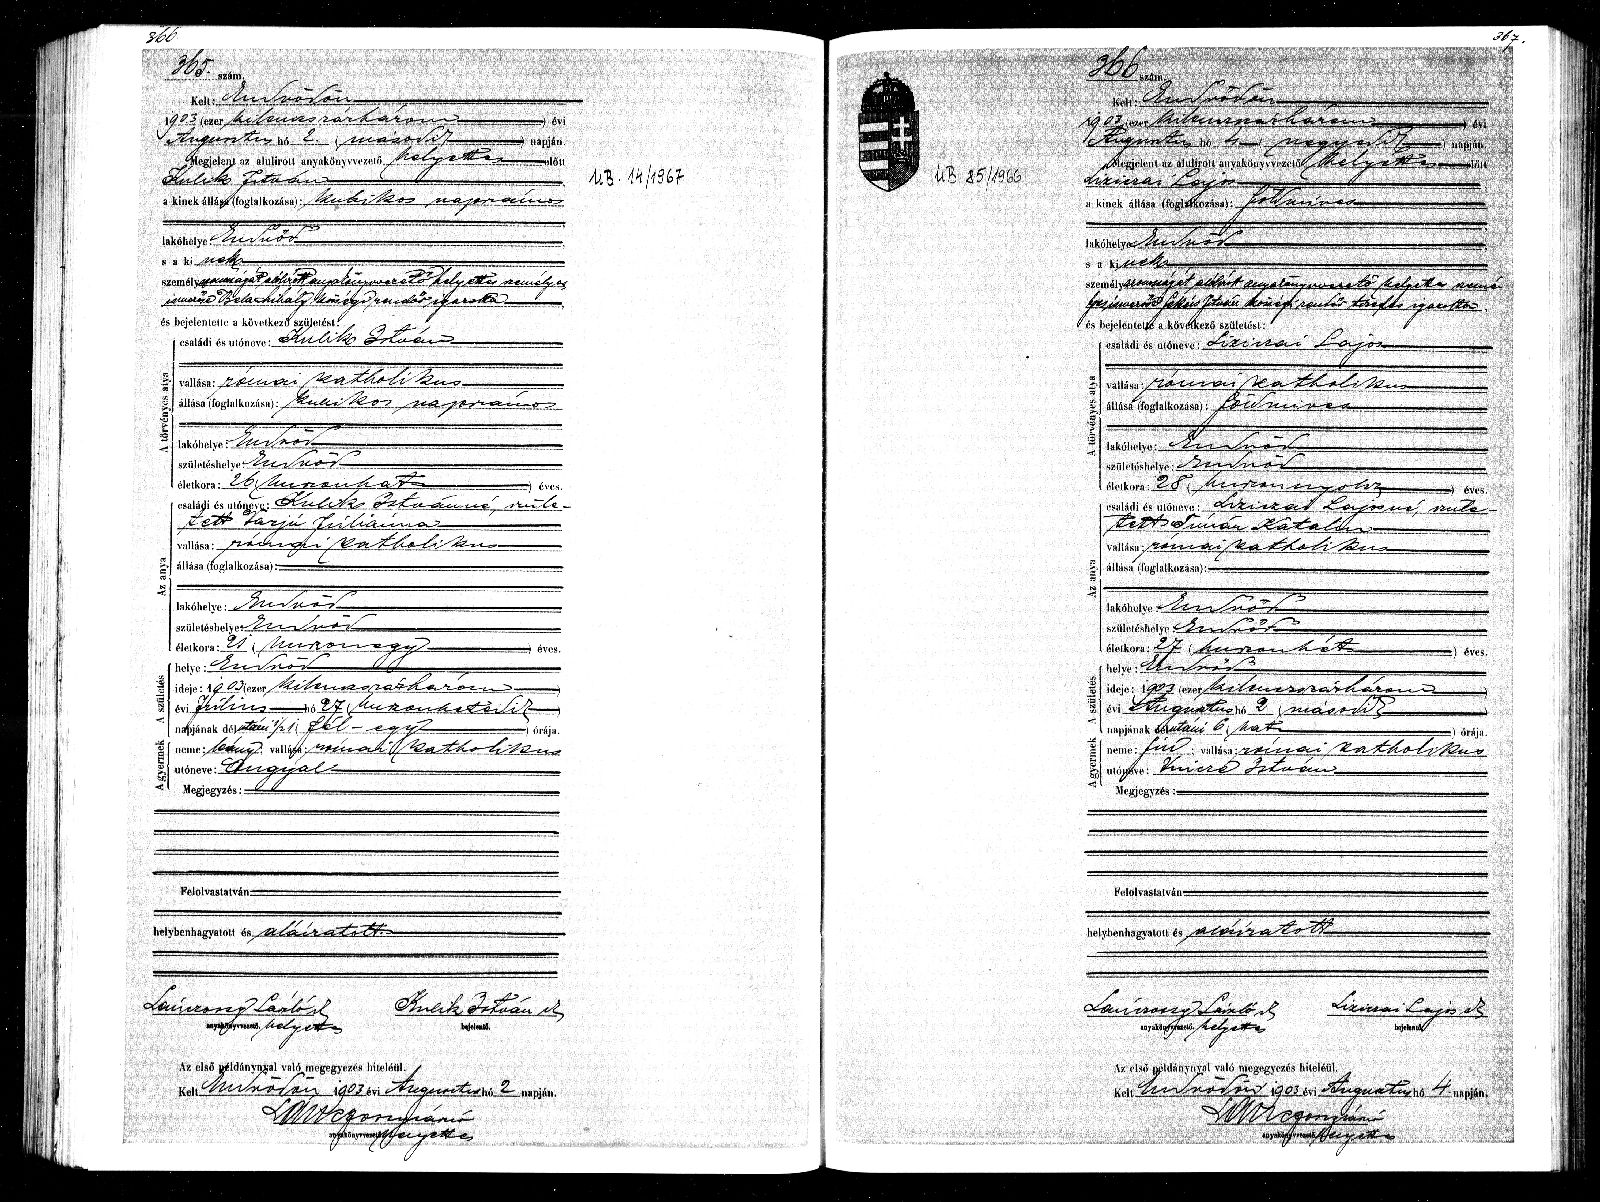 366
365. szám.
Kelt: Endrődön
1903 (ezer kilenczszázhárom) évi
Augusztus hó 2. (második) napján.
Megjelent az alulirott anyakönyvvezető helyettes előtt
Kulik István
a kinek állása (foglalkozása): kubikos napszámos
lakóhelye Endrőd
s a ki nek
személyazonosságát alólírott anyakönyvvezető helyettes személyes
ismerőse Bela Mihály községi rendőr igazolta
és bejelentette a következő születést:
A törvényes atya
családi és utóneve: Kulik István
vallása: római katholikus
állása (foglalkozása): kubikos napszámos
lakóhelye: Endrőd
születéshelye Endrőd
életkora: 26 (huszonhat) éves.
Az anya
családi és utóneve: Kulik Istvánné, szüle-
tett Varjú Juliánna
vallása: római katholikus
állása (foglalkozása):
lakóhelye: Endrőd
születéshelye: Endrőd
életkora: 21 (huszonegy) éves.
A születés
helye: Endrőd
ideje: 1903 (ezer kilenczszázhárom)
évi Július hó 27 (huszonhetedik)
napjának délutáni 1/21 (fél-egy) órája.
A gyermek
neme: leány vallása: római katholikus
utóneve: Angyal
Megjegyzés:
Felolvastatván
helybenhagyatott és aláíratott.
Launzony László sk
anyakönyvvezető. helyettes
Kulik István sk
bejelentő.
Az első példánynyal való megegyezés hiteléül.
Kelt Endrődön 1903 évi Augusztus hó 2 napján.
anyakönyvvezető helyettes
UB. 14/1967
367.
UB 85/1966
366 szám.
Kelt: Endrődön
1903 (ezer kilenczszázhárom) évi
Augusztus hó 4 (negyedik) napján
Megjelent az alulirott anyakönyvvezető helyettes előtt
Liziczai Lajos
a kinek állása (foglalkozása): földmives
lakóhelye Endrőd
s a ki nek
személyazonosságát alólírt anyakönyvvezető helyettes szemé-
lyes ismerőse István községi rendőr igazolta
és bejelentette a következő születést:
A törvényes atya
családi és utóneve: Liziczai Lajos
vallása: római katholikus
állása (foglalkozása): földmives
lakóhelye: Endrőd
születéshelye: Endrőd
életkora: 28 (huszonnyolcz) éves.
Az anya
családi és utóneve: Liziczai Lajosné, szüle-
tett Tímár Katalin
vallása: római katholikus
állása (foglalkozása):
lakóhelye: Endrőd
születéshelye: Endrőd
életkora: 27 (huszonhét) éves.
A születés
helye: Endrőd
ideje: 1903 (ezer kilenczszázhárom)
évi Augusztus hó 2 (második)
napjának délutáni 6 (hat) órája.
A gyermek
neme: fiú, vallása: római katholikus
utóneve: Imre István
Megjegyzés:
Felolvastatván
helybenhagyatott és aláíratott
Launzony László sk
anyakönyvvezető. helyettes
Liziczai Lajos sk
bejelentő.
Az első példánynyal való megegyezés hiteléül.
Kelt Endrődön 1903 évi Augusztus hó 4 napján.
anyakönyvvezető helyettes